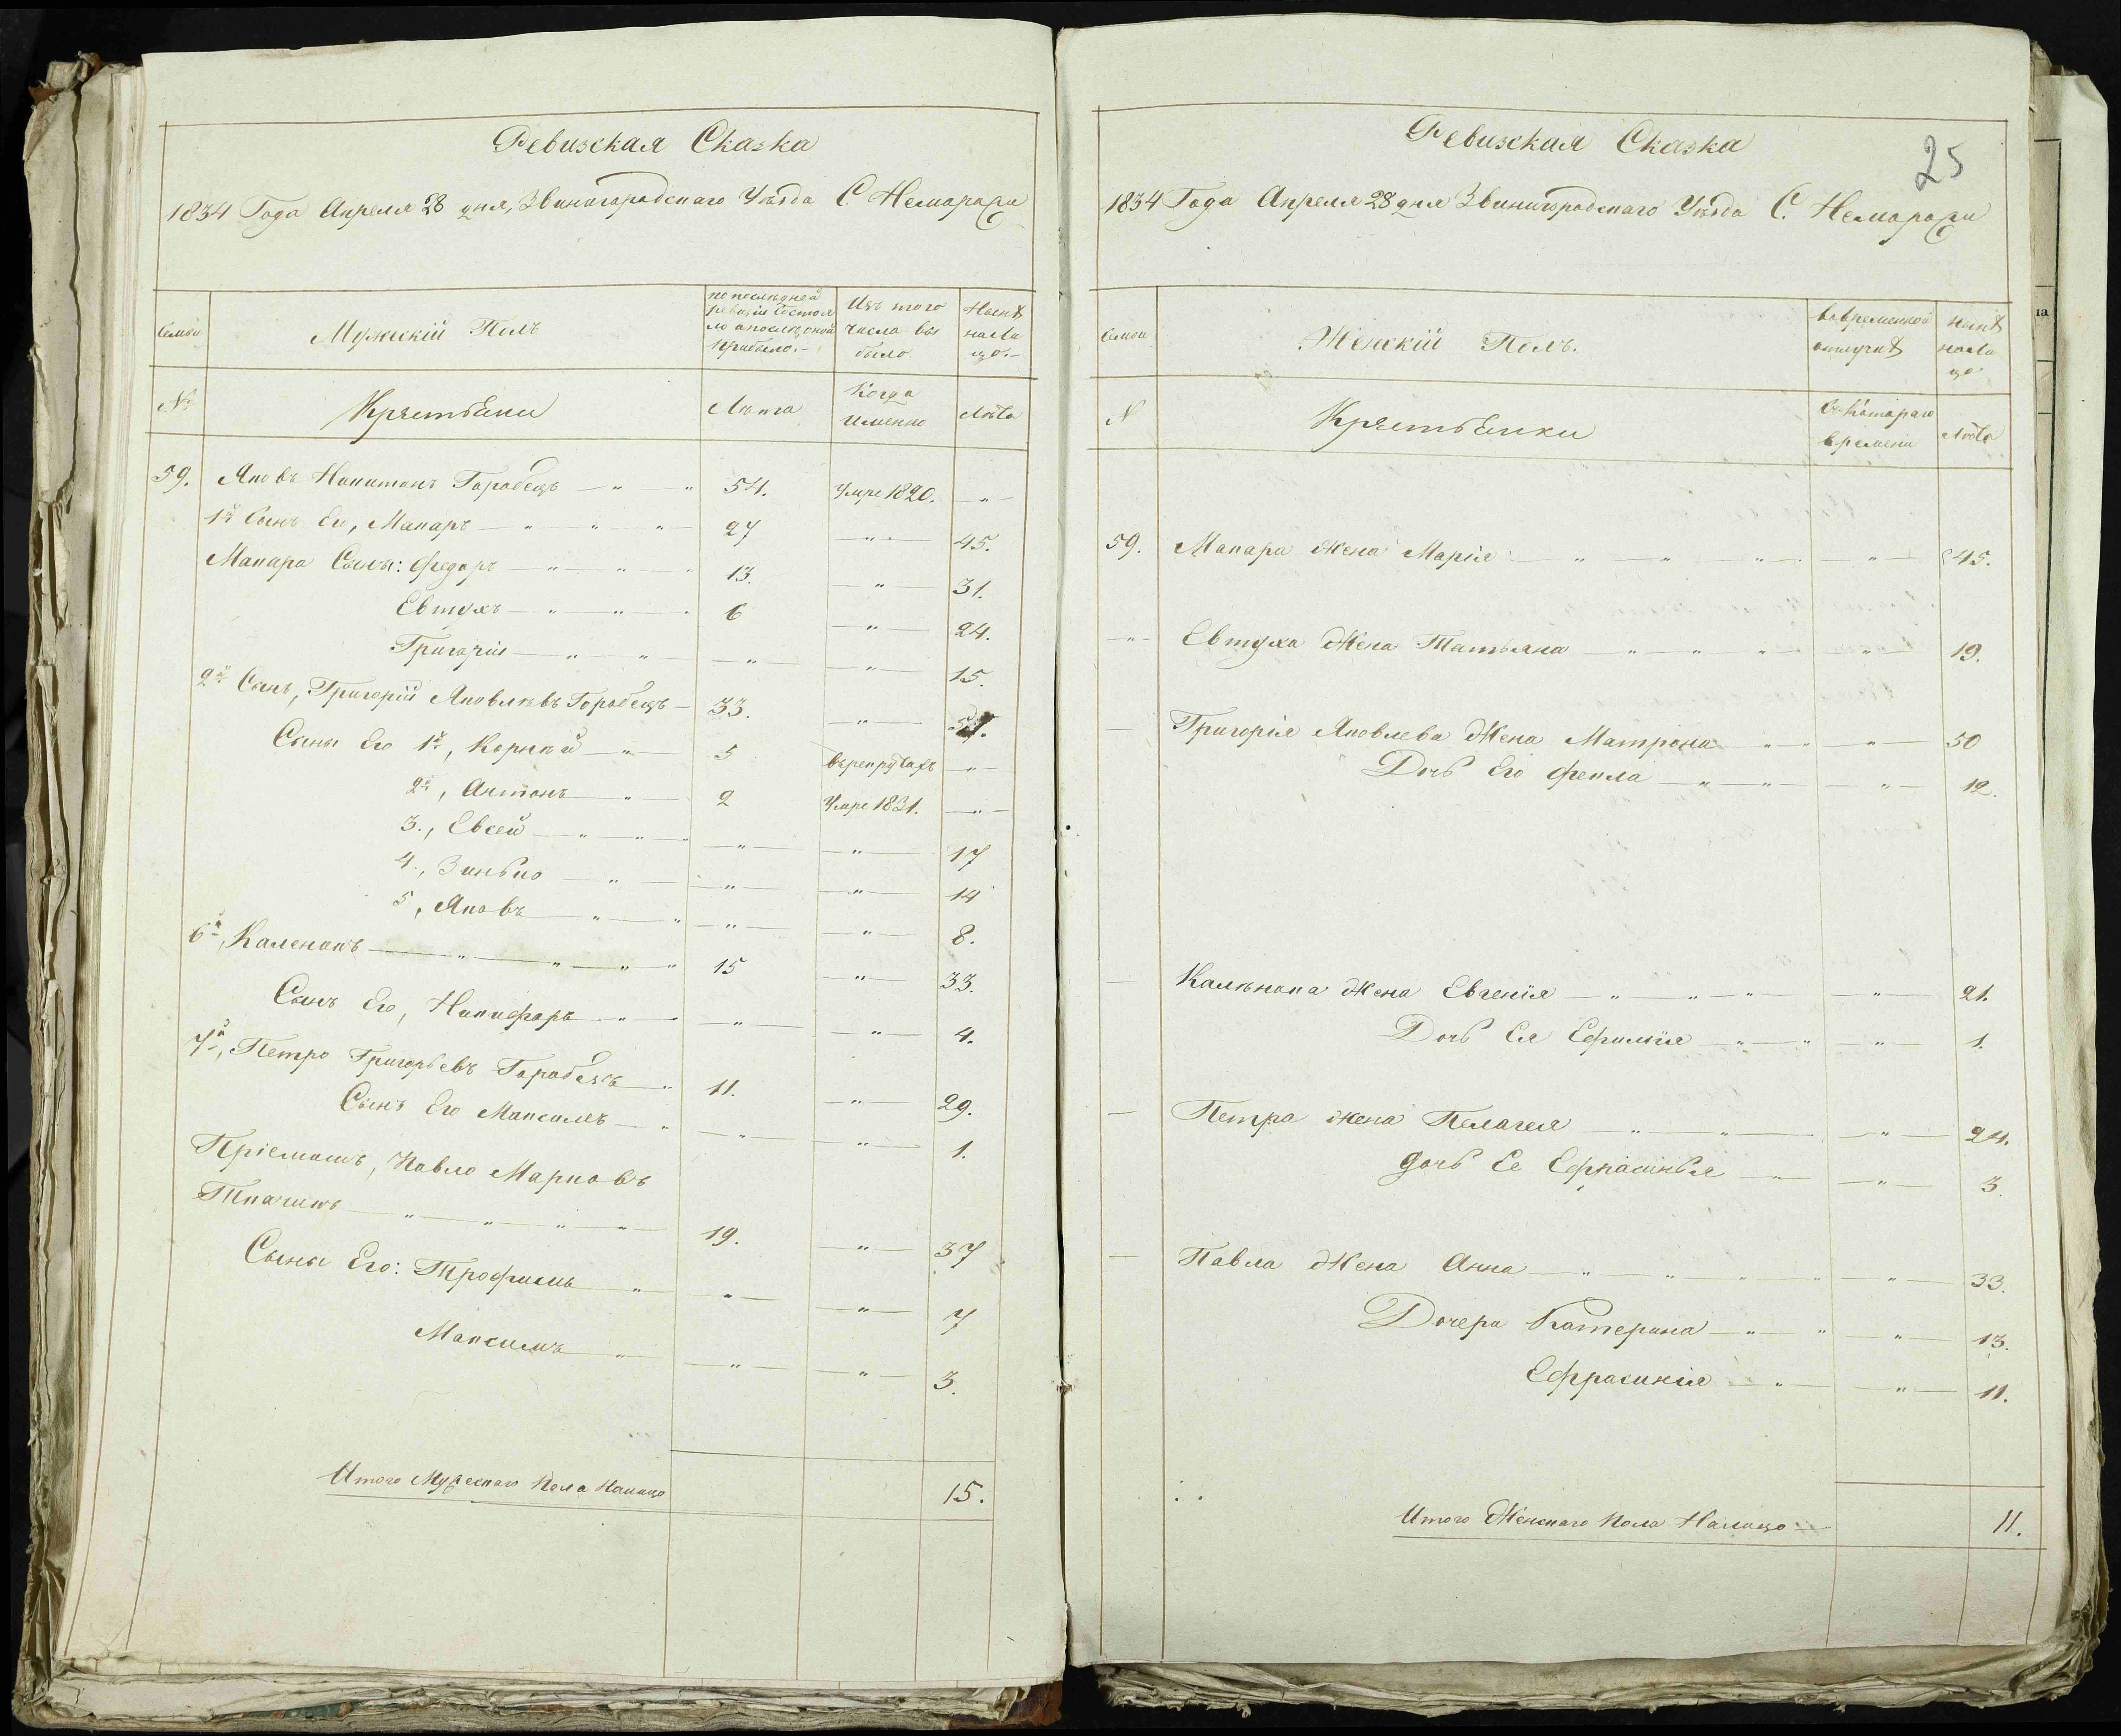 Ревизская Сказка
1834 Года Апреля 28 дня, Звинигородскаго Уѣзда С. Неморожи
Семьи
Мужескій Полъ
по послѣдней ревизіи состояло а после оной прибыло.-
Изъ того числа выбыло
Нынѣ налицо.-
№
Крѣстьѣни
Лѣта
Когда именно
Лѣта
59. Яковъ Никитинъ Горобецъ — " " 54. Умре 1820. — " —
1й Сынъ Его, Макаръ — " " " — 27 — " — 45.
Макара Сыны: Федоръ — " — " . 13. — " — 31.
Евтухъ — " " . 6 — " — 24.
Григорій — " " — " — " — 15.
2й Сынъ, Григорій Яковлѣвъ Горобецъ — 33. — " — 51.
Сыны Его 1й, Корнѣй — " — 5 врекрутахъ — " —
2й, Антонъ " — 2 Умре 1831. — " —
3., Евсей — " — " — " — " — 17
4., Зинько — " — " — " — 14
5, Яковъ " — " — " — " — 8.
6й, Каленикъ — " " " " 15 — " — 33.
Сынъ Его, Никифоръ — " — " — " — 4.
7й, Петро Григорьевъ Горобецъ — " 11. — " — 29.
Сынъ Его Максимъ — " — " — " — 1.
Пріемышъ, Павло Марковъ
Ткачикъ — " " " " — 19. — " — 37
Сыны Его: Трофимъ " — " — " — 7
Максимъ " — " — " — 3.
Итого Мужескаго Пола Налицо 15.
25
Ревизская Сказка
1834 Года Апреля 28 дня Звинигородскаго Уѣзда С. Неморожи
Семьи
Женскій Полъ.
Вовременной отлучкѣ
Нынѣ налицо
N
Крѣстьѣнки
Съ Котораго времени
Лѣта
59. Макара Жена Марія — " — " — " — " — 45.
— " — Евтуха Жена Татьяна — " — " — " — " — 19.
— Григорія Яковлева Жена Матрона " — " — 50
Дочь Его Фекла — " — " — " — 12.
— Калѣника Жена Евгенія — " — " — " — " — 21.
Дочь Ея Ефимія — " — " — " — 1.
— Петра жена Пелагея — " — " — " — 24.
дочь Ее Ефрасинья — " — " — 3.
— Павла Жена Анна — " — " — " — " — " — 33.
Дочери Катерина — " — " — " — 13.
Ефрасинія — " — " — 11.
Итого Женскаго Пола Налицо — 11.